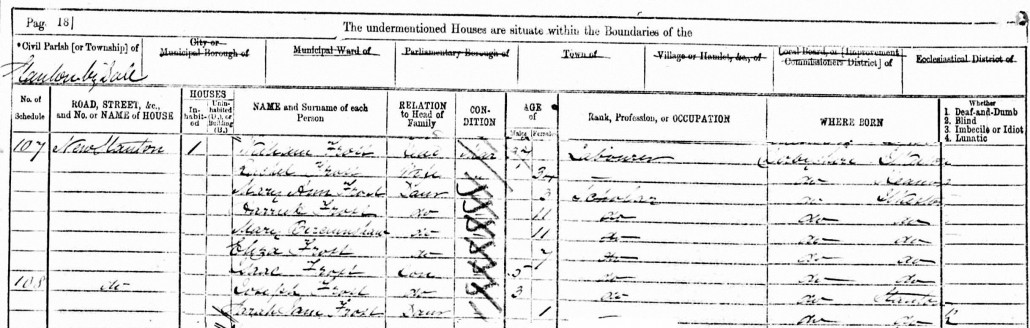 Page 18]
The undermentioned Houses are situate within the Boundaries of the
*Civil Parish [or Township] of
City or Municipal Borough of
Municipal Ward of
Parliamentary Borough of
Town of
Village or Hamlet, &c., of
Local Board, or [Improvement Commissioners District] of
Ecclesiastical District of
Stanton by Dale
No. of Schedule
ROAD, STREET, &c., and No. or NAME of HOUSE
HOUSES
In-habit-ed
Unin-habited (U.), or Building (B.)
NAME and Surname of each Person
RELATION to Head of Family
CON-DITION
AGE of
Males
Females
Rank, Profession, or OCCUPATION
WHERE BORN
Whether
1. Deaf-and-Dumb
2. Blind
3. Imbecile or Idiot
4. Lunatic
107 New Stanton 1 Frost Mar Labourer Derbyshire
Frost Wife do
Mary Ann Frost Daur 3 Scholar do
Frost do 11 do do do
Mary do 11 do do do
Eliza Frost do 7 do do do
Isaac Frost Son 5 do do do
108 do Joseph Frost do 3 do do Stanton
Sarah Jane Frost Daur 1 do do